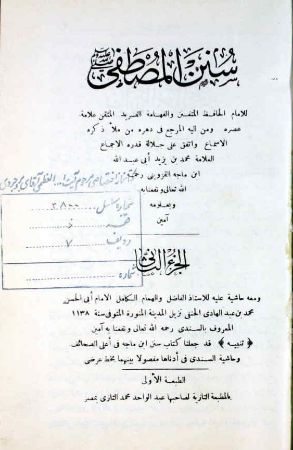 سنن المصطفى
صلى الله عليه وسلم
للامام الحافظ المتفنن والفهامة الفريد المتقن علامة
عصره ومن اليه المرجع في دهره من ملأ ذكره
الاسماع واتفق على جلالة قدره الاجماع
العلامة محمد بن يزيد أبى عبد الله
ابن ماجه القزوينى رحمه
الله تعالى ونفعنا به
وبعلومه
آمين
شماره مسلسل ٣٨٠٠
ردیف ٧
شماره
الجزء الثانى
ومعه حاشية عليه للاستاذ الفاضل والهمام الكامل الامام أبى الحسن
محمد بن عبد الهادى الحنفى نزيل المدينة المنورة المتوفى سنة ١١٣٨
المعروف بالسندى رحمه الله تعالى ونفعنا به آمين
﴿ تنبيه ﴾ قد جعلنا كتاب سنن ابن ماجه فى أعلى الصحائف
وحاشية السندى فى أدناها مفصولا بينهما بخط عرضى
الطبعة الأولى
بالمطبعة التازية لصاحبها عبد الواحد محمد التازى بمصر